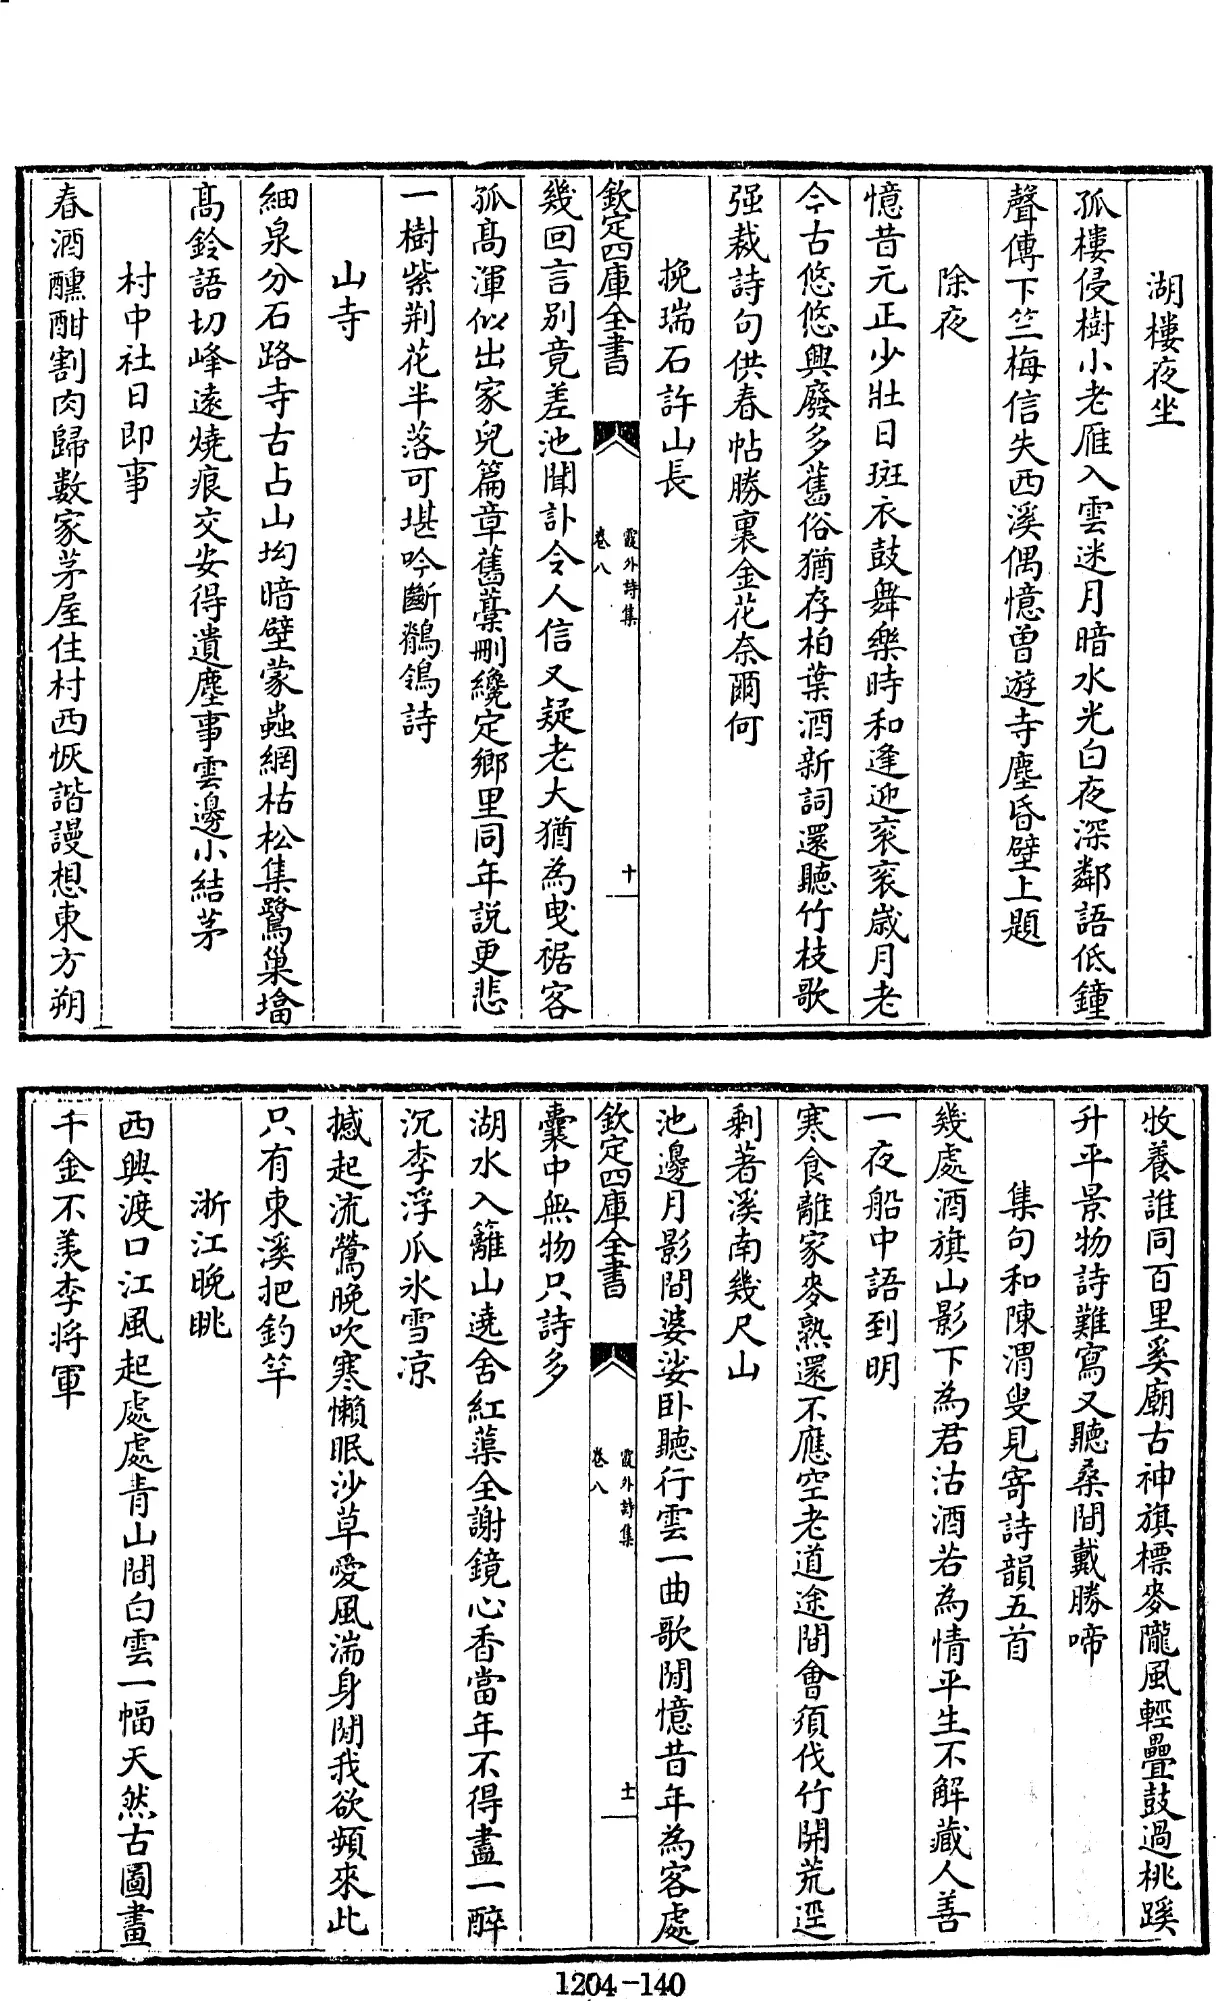 湖樓夜坐
孤樓侵樹小老雁入雲迷月暗水光白夜深鄰語低鐘
聲傳下竺梅信失西溪偶憶曽遊寺塵昏壁上題
除夜
憶昔元正少壯日斑衣鼓舞樂時和逢迎衮衮歳月老
今古悠悠興廢多舊俗猶存柏葉酒新詞還聽竹枝歌
强裁詩句供春帖勝裏金花奈爾何
挽瑞石許山長
欽定四庫全書
霞外詩集
卷八
十
幾回言别竟差池聞訃令人信又疑老大猶為曵裾客
孤髙渾似出家兒篇章舊藁刪纔定鄉里同年説更悲
一樹紫荆花半落可堪吟斷鶺鴒詩
山寺
細泉分石路寺古占山坳暗壁蒙蟲網枯松集鷺巢墖
髙鈴語切峰遠燒痕交安得遺塵事雲邊小結茅
村中社日即事
春酒醺酣割肉歸數家茅屋住村西恢諧謾想東方朔
牧養誰同百里奚廟古神旗標麥隴風輕疊鼓過桃蹊
升平景物詩難寫又聽桑間戴勝啼
集句和陳渭叟見寄詩韻五首
幾處酒旗山影下為君沽酒若為情平生不解藏人善
一夜船中語到明
寒食離家麥熟還不應空老道途間會須伐竹開荒逕
剩著溪南幾尺山
池邊月影間婆娑卧聽行雲一曲歌閒憶昔年為客處
欽定四庫全書
霞外詩集
卷八
十一
囊中無物只詩多
湖水入籬山遶舍紅蕖全謝鏡心香當年不得盡一醉
沉李浮瓜氷雪凉
撼起流鶯晚吹寒懶眠沙草愛風湍身閒我欲頻來此
只有東溪把釣竿
浙江晚眺
西興渡口江風起處處青山間白雲一幅天然古圖畫
千金不羨李將軍
1204-140